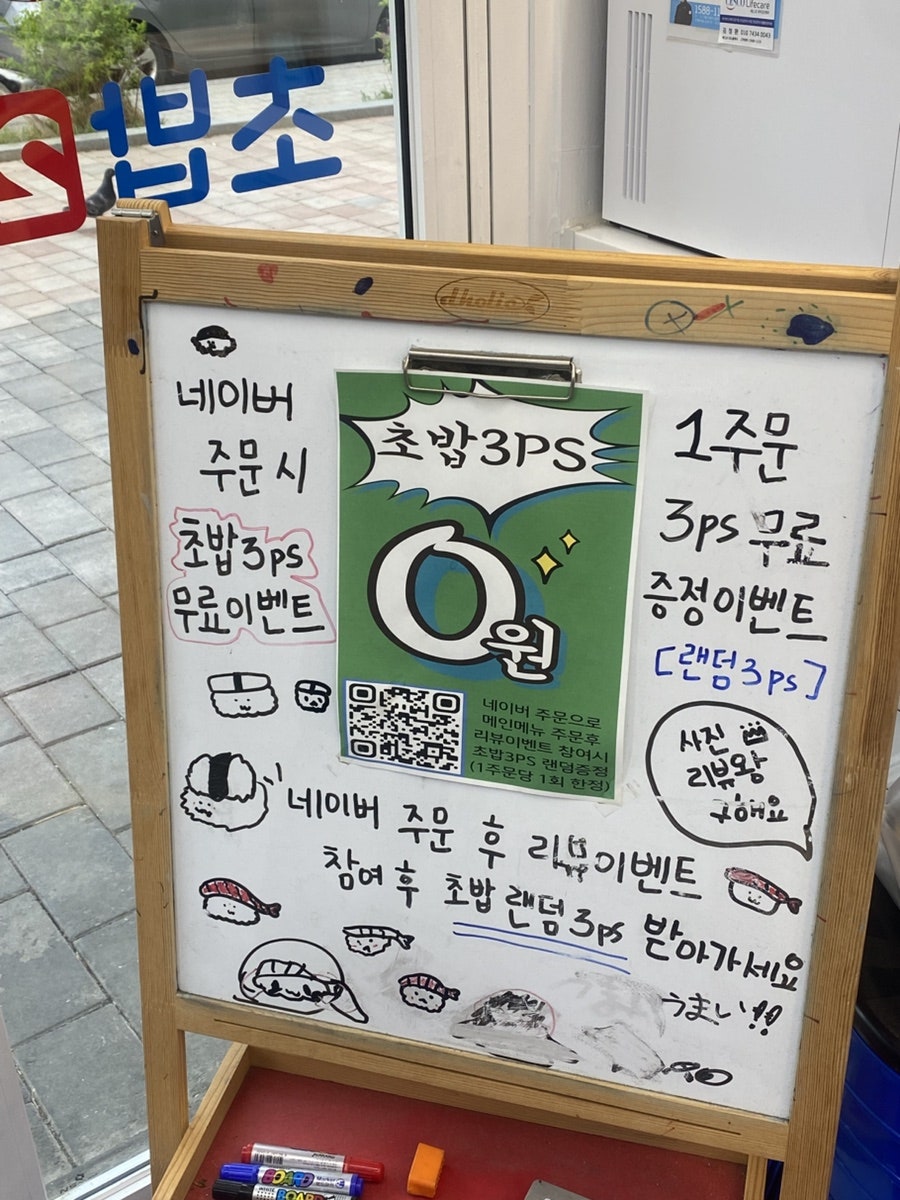 초밥
1588-11
CESCO Lifecare
dholic
네이버
주문 시
초밥3ps
무료이벤트
초밥3PS
0원
네이버 주문으로
메인메뉴 주문후
리뷰이벤트 참여시
초밥3PS 랜덤증정
(1주문당 1회 한정)
1주문
3ps 무료
증정이벤트
[랜덤3ps]
사진
리뷰왕
구해요
네이버 주문 후 리뷰이벤트
참여 후 초밥 랜덤3ps 받아가세요
うまい!!
BOARD Marker
BOARD